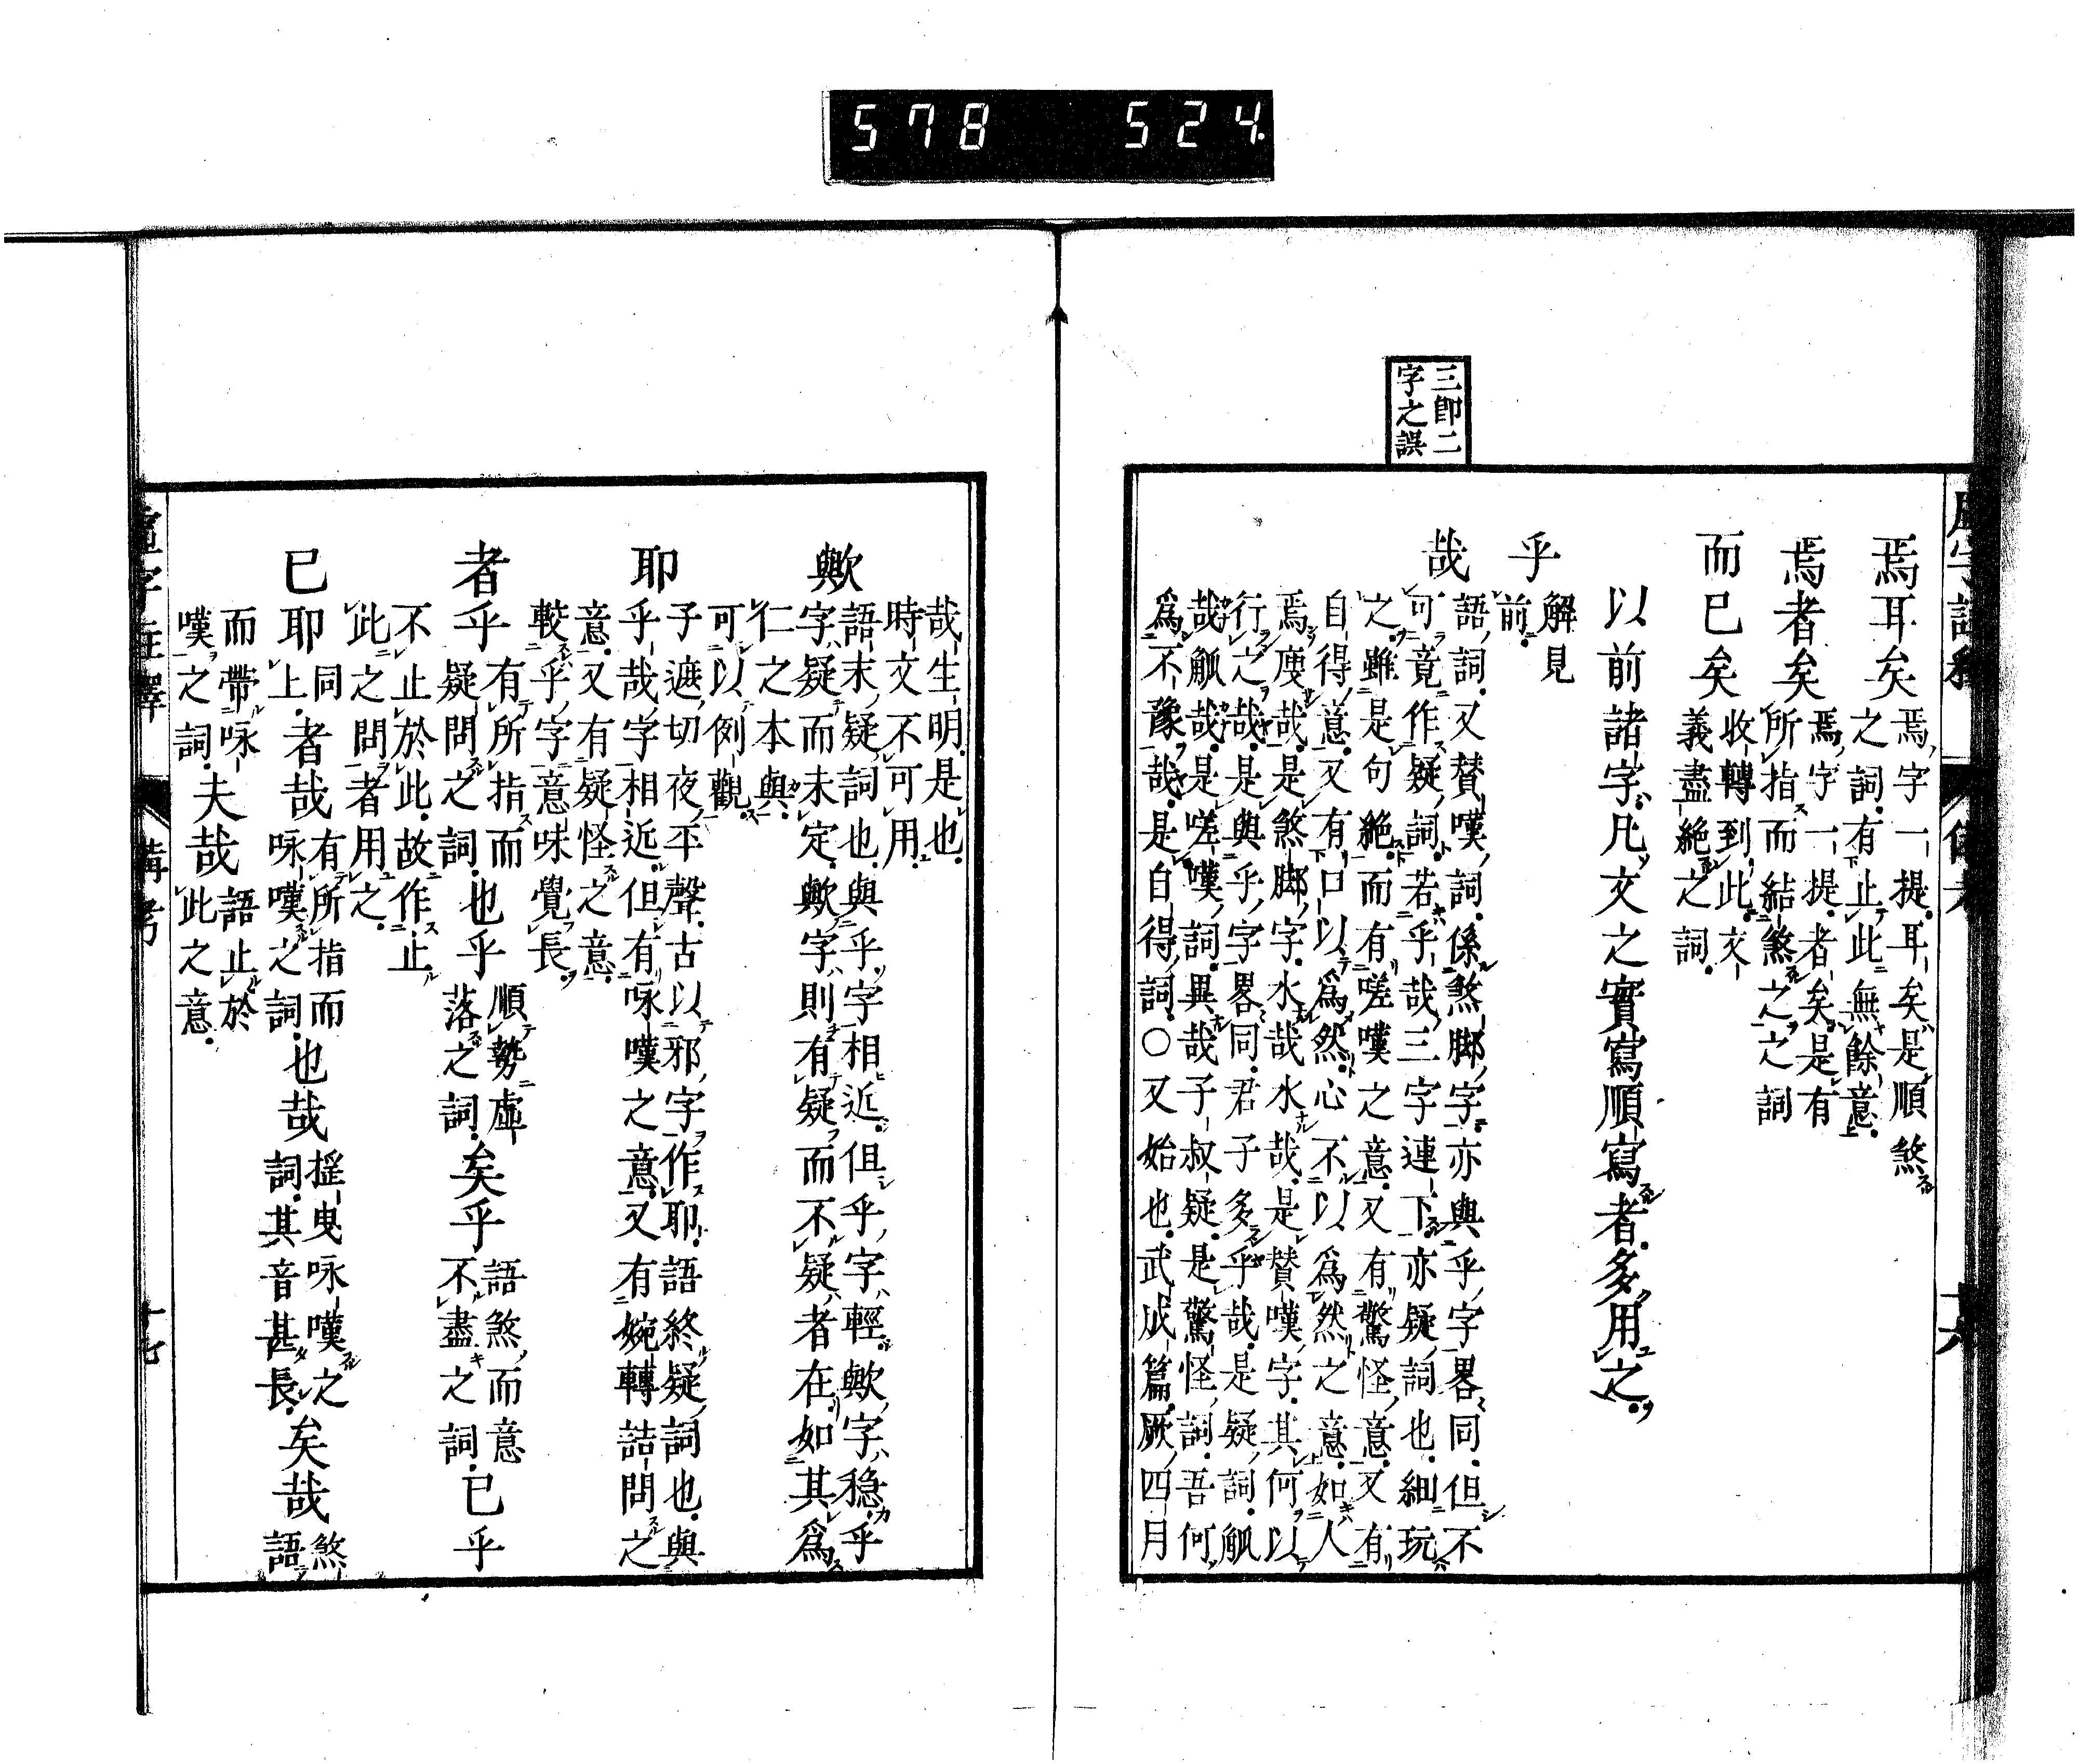 578 524
三卽二
字之誤
焉耳矣 焉字一提耳矣是順煞
之詞有止此無餘意
焉者矣 焉字一提者矣是有
所指而結煞之之詞
而已矣 收轉到此文
義盡絕之詞
以前諸字凡文之實寫順寫者多用之
乎 解見
前
哉 語詞又贊嘆詞係煞脚字亦與乎字畧同但不
可竟作疑詞若乎哉三字連下亦疑詞也細玩
之雖是句絕而有嗟嘆之意又有驚怪意又有
自得意又有口以爲然心不以爲然之意如人
焉廋哉是煞脚字水哉水哉是贊嘆字其何以
行之哉是與乎字畧同君子多乎哉是疑詞觚
哉觚哉是嗟嘆詞異哉子叔疑是驚怪詞吾何
爲不豫哉是自得詞○又始也武成篇厥四月
哉生明是也
時文不可用
歟 語末疑詞也與乎字相近但乎字輕歟字穩乎
字疑而未定歟字則有疑而不疑者在如其爲
仁之本與
可以例觀
耶 子遮切夜平聲古以邪字作耶語終疑詞也與
乎哉字相近但有咏嘆之意又有婉轉詰問之
意又有疑怪之意
較乎字意味覺長
者乎 有所指而
疑問之詞 也乎 順勢虛
落之詞 矣乎 語煞而意
不盡之詞 已乎
不止於此故作止
此之問者用之
已耶 同
上 者哉 有所指而
咏嘆之詞 也哉 搖曳咏嘆之
詞其音甚長 矣哉 煞
語
而帶咏
嘆之詞 夫哉 語止於
此之意
講考